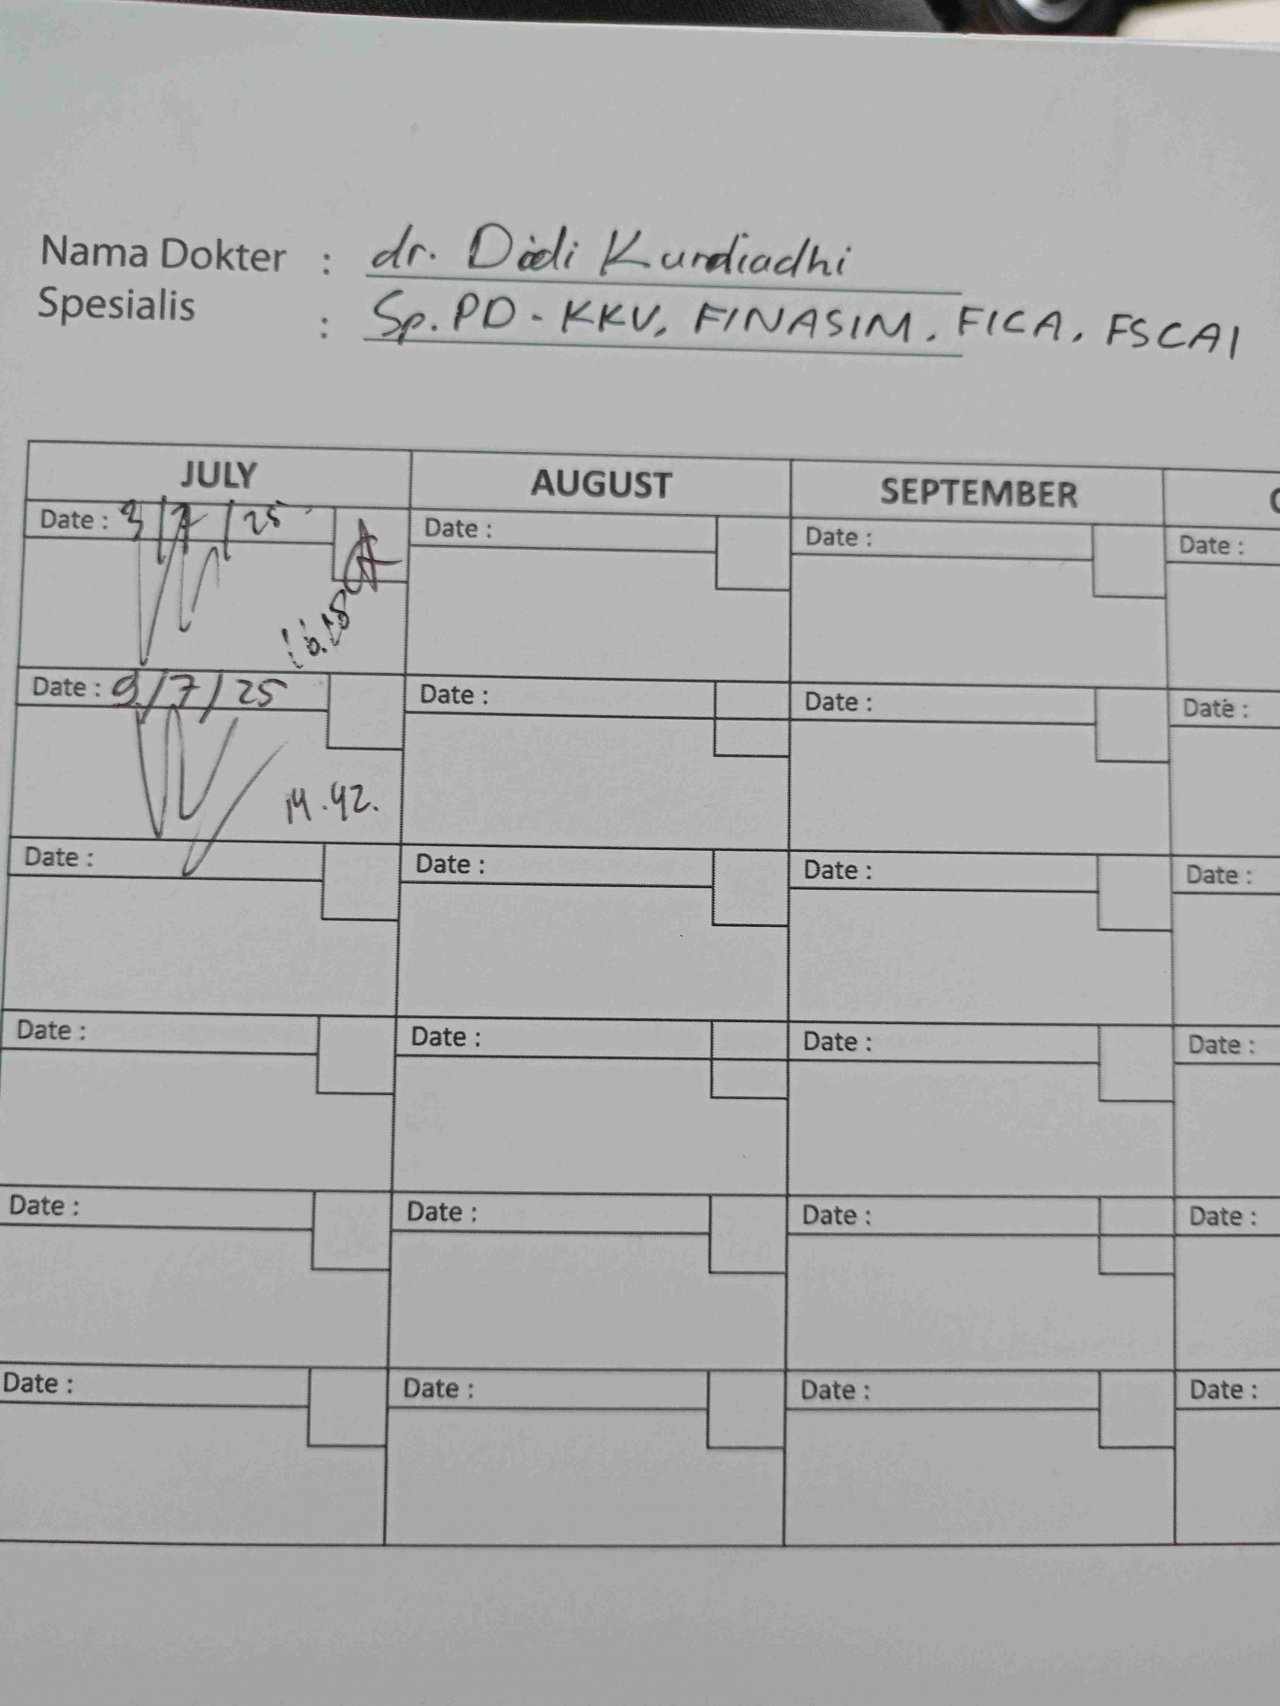 Nama Dokter : dr. Didi Kurdiadhi
Spesialis : Sp.PD - KKV, FINASIM, FICA, FSCAI
JULY AUGUST SEPTEMBER
Date : 3/7/25 Date : Date : Date :
Date : 9/7/25 Date : Date : Date :
14.42.
Date : Date : Date : Date :
Date : Date : Date : Date :
Date : Date : Date : Date :
Date : Date : Date : Date :